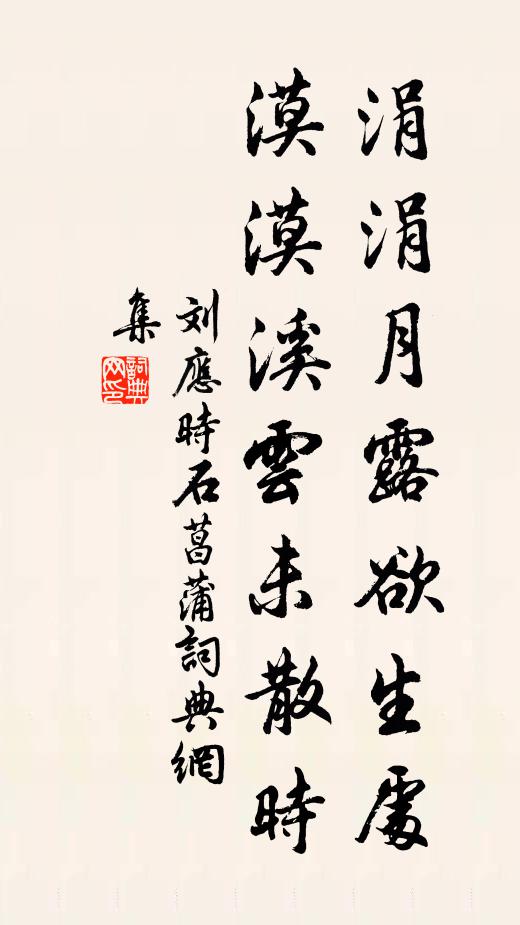 涓涓月露欲生處
漠漠溪雲未散時
刘應時石菖蒲詞典網
集
詞典网印